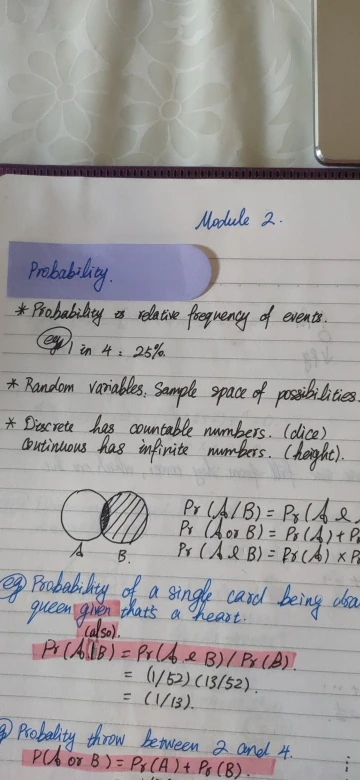 Module 2.
Probability.
* Probability is relative frequency of events.
eg) 1 in 4 = 25%.
* Random variables. Sample space of possibilities.
* Discrete has countable numbers. (dice)
continuous has infinite numbers. (height).
Pr(A/B) = Pr(A &
Pr(A or B) = Pr(A) + Pr
Pr(A & B) = Pr(A) x Pr
A B.
eg) Probability of a single card being dra
queen given thats a heart.
(also).
Pr(A|B) = Pr(A & B) / Pr(B).
= (1/52)(13/52).
= (1/13).
g) Probality throw between 2 and 4.
P(A or B) = Pr(A) + Pr(B).